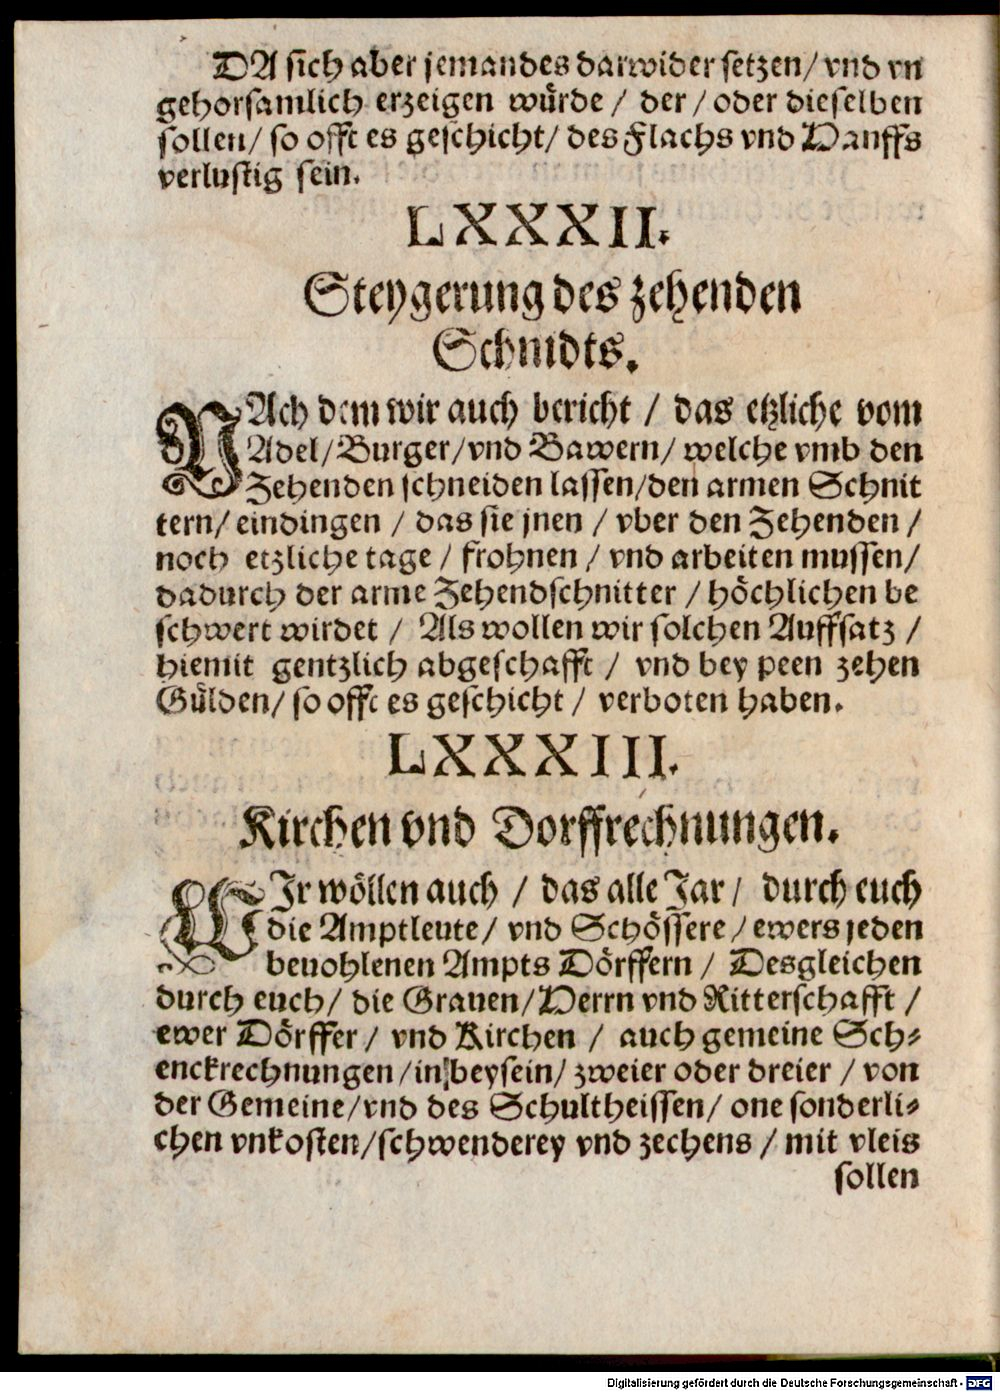 DA sich aber jemandes darwider setzen/ vnd vn
gehorsamlich erzeigen würde / der / oder dieselben
sollen/ so offt es geschicht/ des Flachs vnd Hanffs
verlustig sein.
LXXXII.
Steygerung des zehenden
Schnidts.
NAch dem wir auch bericht / das etzliche vom
Adel/ Burger/ vnd Bawern/ welche vmb den
Zehenden schneiden lassen/den armen Schnit
tern/ eindingen / das sie jnen / vber den Zehenden /
noch etzliche tage / frohnen / vnd arbeiten mussen/
dadurch der arme Zehendschnitter / höchlichen be
schwert wirdet / Als wollen wir solchen Auffsatz /
hiemit gentzlich abgeschafft / vnd bey peen zehen
Gülden/ so offt es geschicht / verboten haben.
LXXXIII.
Kirchen vnd Dorffrechnungen.
WJr wöllen auch / das alle Jar / durch euch
die Amptleute/ vnd Schössere / ewers jeden
beuohlenen Ampts Dörffern / Desgleichen
durch euch/ die Grauen/Herrn vnd Ritterschafft /
ewer Dörffer / vnd Kirchen / auch gemeine Sch-
enckrechnungen/in beysein/ zweier oder dreier / von
der Gemeine/vnd des Schultheissen/ one sonderli-
chen vnkosten/schwenderey vnd zechens / mit vleis
sollen
Digitalisierung gefördert durch die Deutsche Forschungsgemeinschaft - DFG